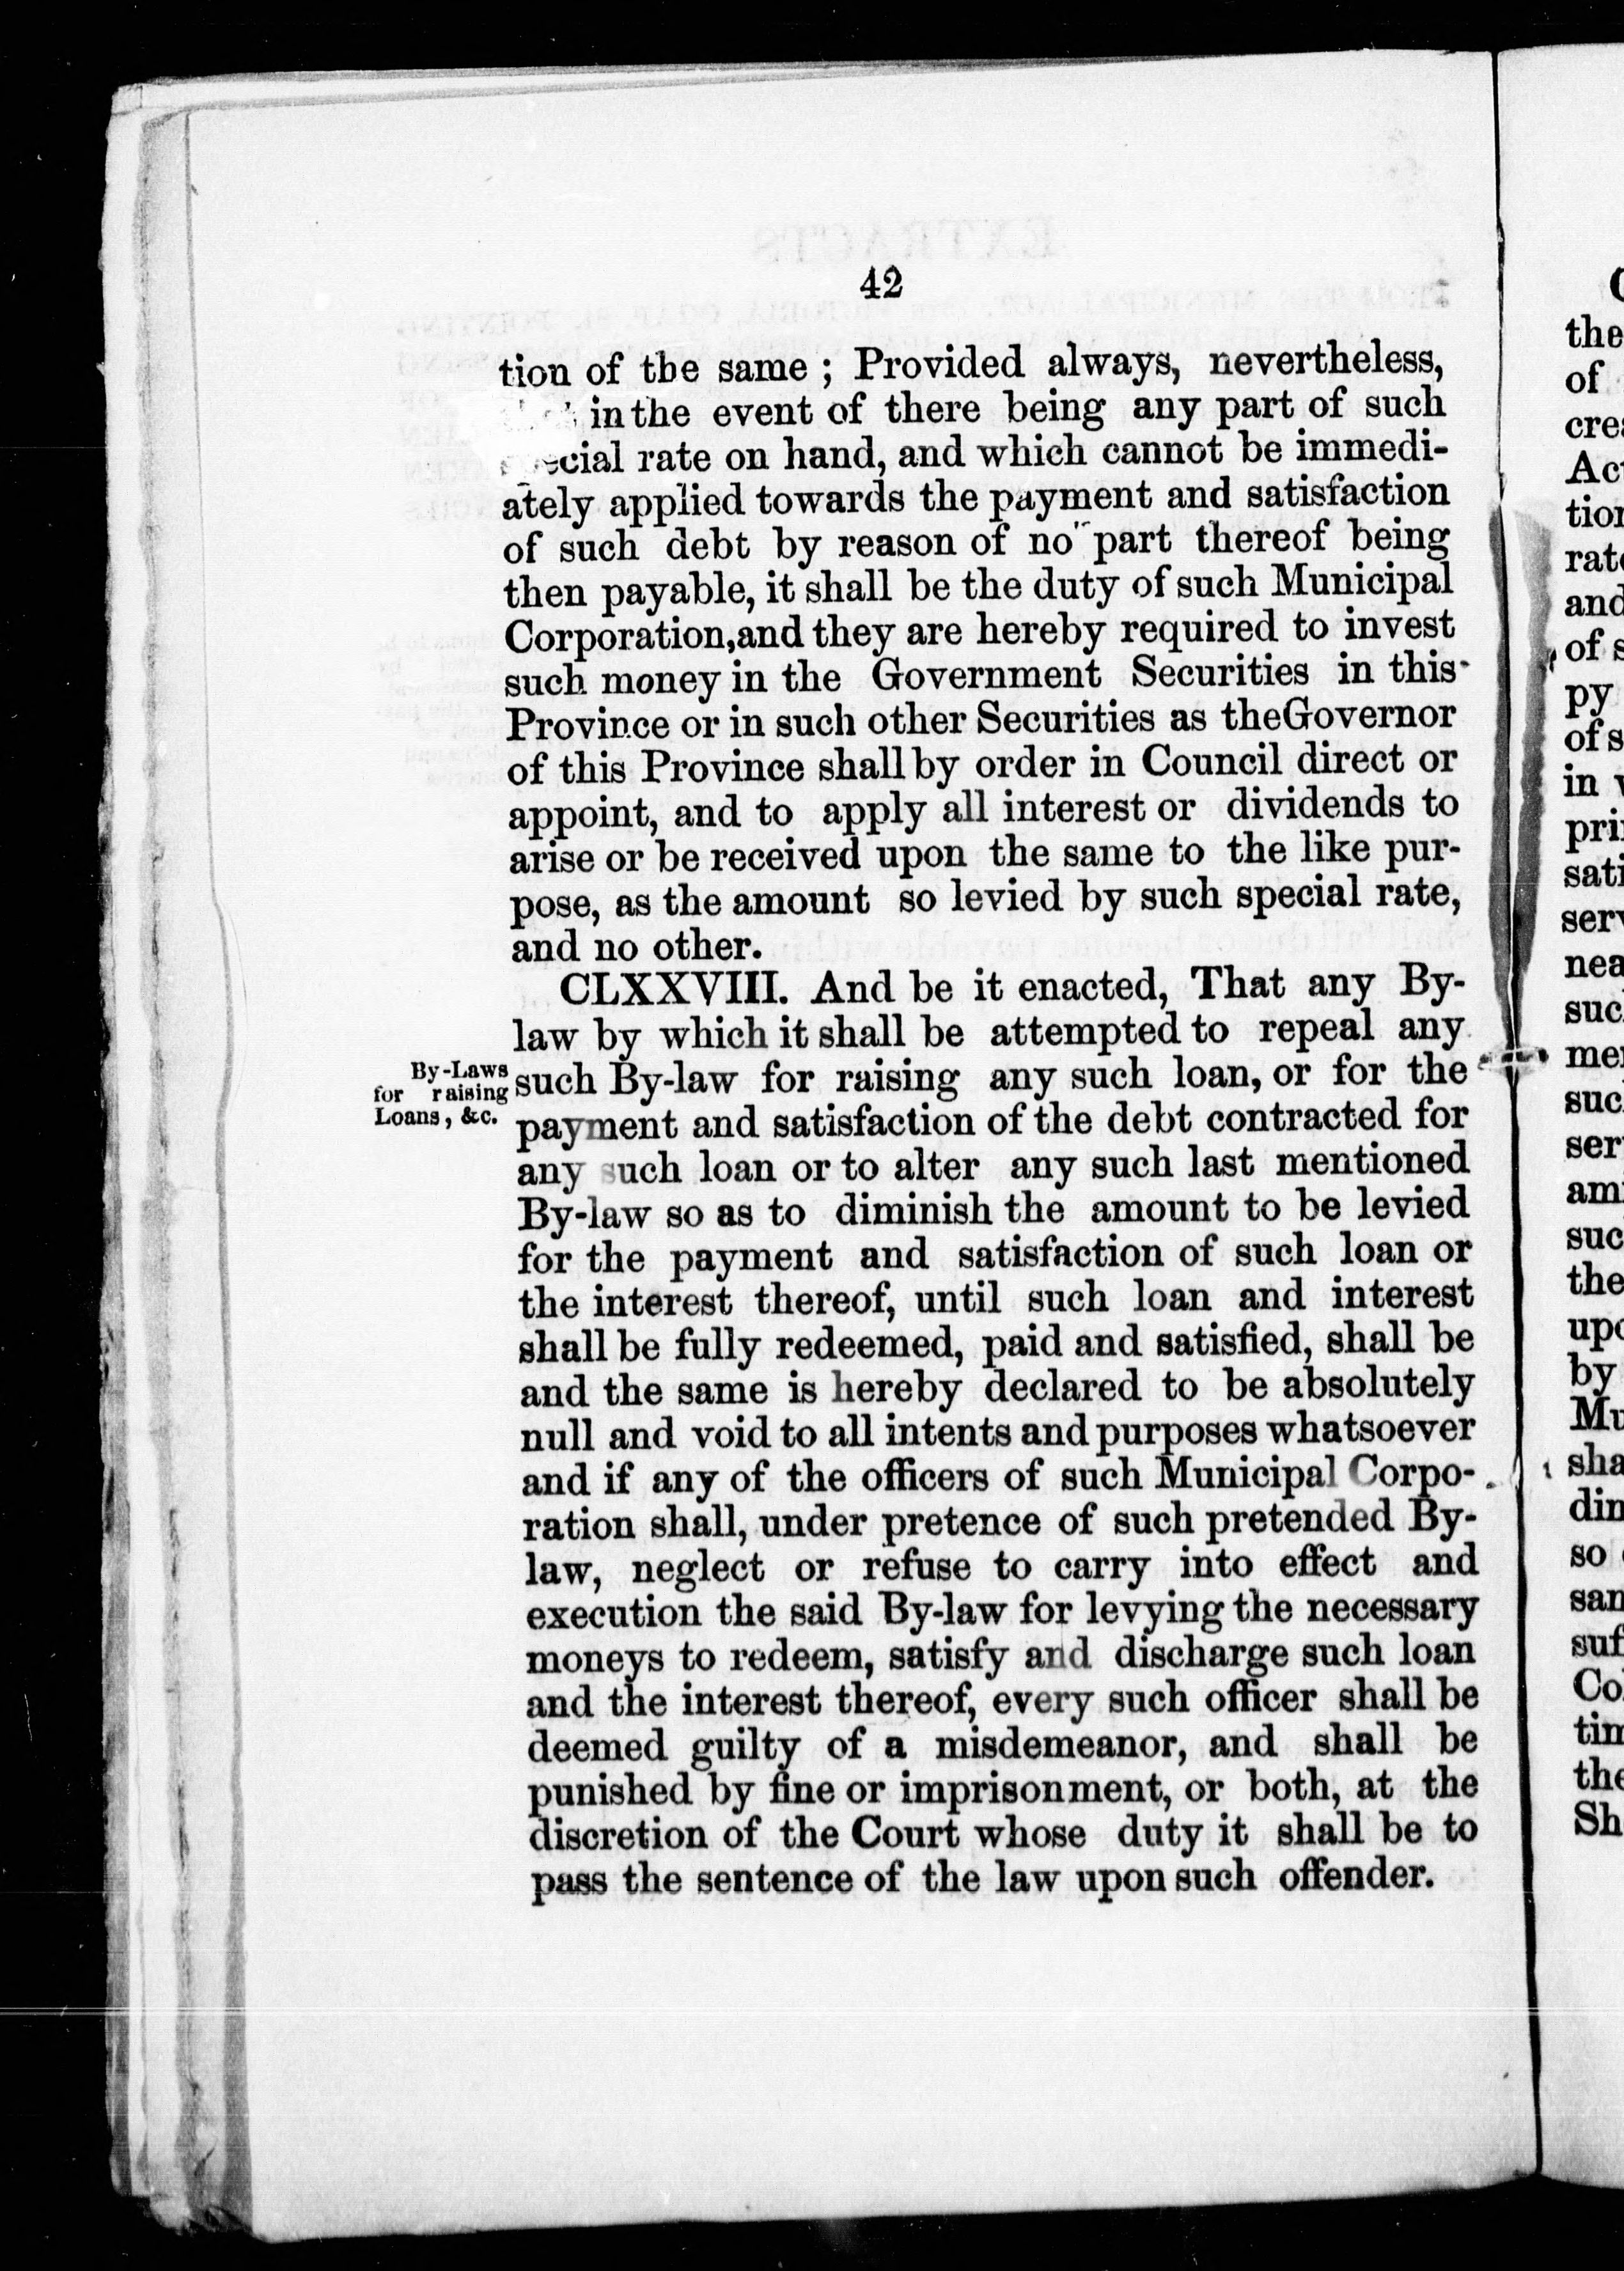 42
tion of the same ; Provided always, nevertheless,
in the event of there being any part of such
special rate on hand, and which cannot be immedi-
ately applied towards the payment and satisfaction
of such debt by reason of no part thereof being
then payable, it shall be the duty of such Municipal
Corporation,and they are hereby required to invest
such money in the Government Securities in this
Province or in such other Securities as theGovernor
of this Province shall by order in Council direct or
appoint, and to apply all interest or dividends to
arise or be received upon the same to the like pur-
pose, as the amount so levied by such special rate,
and no other.
CLXXVIII. And be it enacted, That any By-
law by which it shall be attempted to repeal any
By-Laws
for raising
Loans, &c.
such By-law for raising any such loan, or for the
payment and satisfaction of the debt contracted for
any such loan or to alter any such last mentioned
By-law so as to diminish the amount to be levied
for the payment and satisfaction of such loan or
the interest thereof, until such loan and interest
shall be fully redeemed, paid and satisfied, shall be
and the same is hereby declared to be absolutely
null and void to all intents and purposes whatsoever
and if any of the officers of such Municipal Corpo-
ration shall, under pretence of such pretended By-
law, neglect or refuse to carry into effect and
execution the said By-law for levying the necessary
moneys to redeem, satisfy and discharge such loan
and the interest thereof, every such officer shall be
deemed guilty of a misdemeanor, and shall be
punished by fine or imprisonment, or both, at the
discretion of the Court whose duty it shall be to
pass the sentence of the law upon such offender.